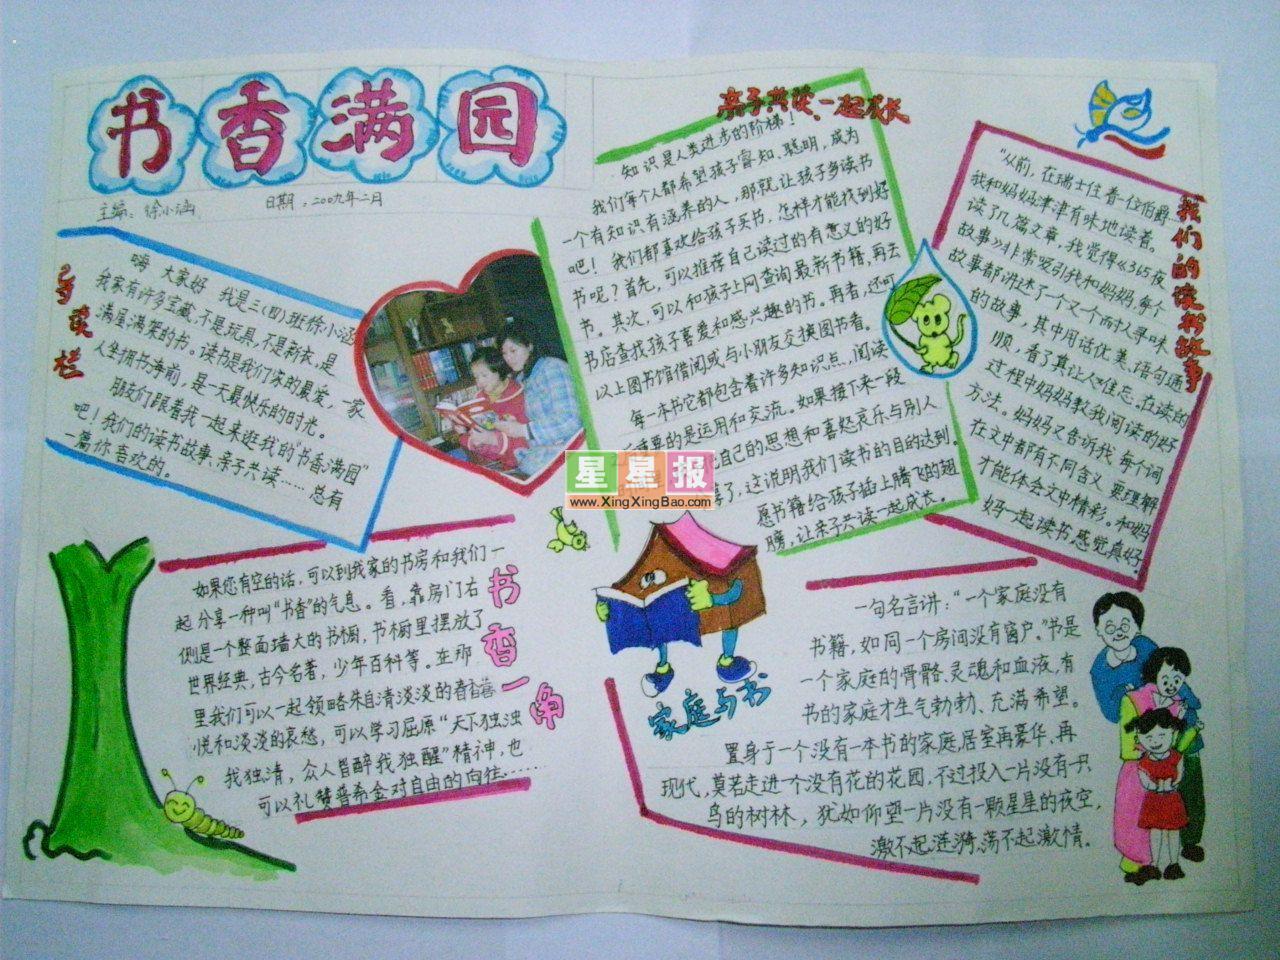 书香满园
主编：徐小涵 日期：2009年二月
导读栏
嗨 大家好 我是三(四)班徐小涵
我家有许多宝藏，不是玩具，不是新衣，是
满屋满架的书。读书是我们家的最爱，一家
人坐拥书海前，是一天最快乐的时光。
朋友们跟着我一起来逛我的"书香满园"
吧！我们的读书故事、亲子共读……总有
一篇你喜欢的。
亲子共读、一起成长
知识是人类进步的阶梯！
我们每个人都希望孩子睿知、聪明，成为
一个有知识有涵养的人，那就让孩子多读书
吧！我们都喜欢给孩子买书，怎样才能找到好
书呢？首先，可以推荐自己读过的有意义的好
书。其次，可以和孩子上网查询最新书籍，再去
书店查找孩子喜爱和感兴趣的书。再者，还可
以上图书馆借阅或与小朋友交换图书看。
每一本书它都包含着许多知识点，阅读
重要的是运用和交流。如果接下来一段
自己的思想和喜怒哀乐与别人
了，这说明我们读书的目的达到。
愿书籍给孩子插上腾飞的翅
膀，让亲子共读一起成长。
我们的读书故事
"从前，在瑞士住着一位伯爵……
我和妈妈津津有味地读着。
读了几篇文章，我觉得《365夜
故事》非常吸引我和妈妈，每个
故事都讲述了一个又一个耐人寻味
的故事，其中用话优美、语句通
顺，看了真让人难忘。在读的
过程中妈妈教我阅读的好
方法。妈妈又告诉我，每个词
在文中都有不同含义，要理解
才能体会文中精彩。和妈
妈一起读书，感觉真好
书香一角
如果您有空的话，可以到我家的书房和我们一
起分享一种叫"书香"的气息。看，靠房门右
侧是一个整面墙大的书橱，书橱里摆放了
世界经典，古今名著，少年百科等。在那
里我们可以一起领略朱自清淡淡的喜
悦和淡淡的哀愁，可以学习屈原"天下独浊
我独清，众人皆醉我独醒"精神，也
可以礼赞普希金对自由的向往……
家庭与书
一句名言讲："一个家庭没有
书籍，如同一个房间没有窗户。"书是
一个家庭的骨骼、灵魂和血液，有
书的家庭才生气勃勃、充满希望。
置身于一个没有一本书的家庭，居室再豪华、再
现代，莫若走进一个没有花的花园，不过投入一片没有一只
鸟的树林，犹如仰望一片没有一颗星星的夜空，
激不起涟漪，荡不起激情。
星星报
www.XingXingBao.com